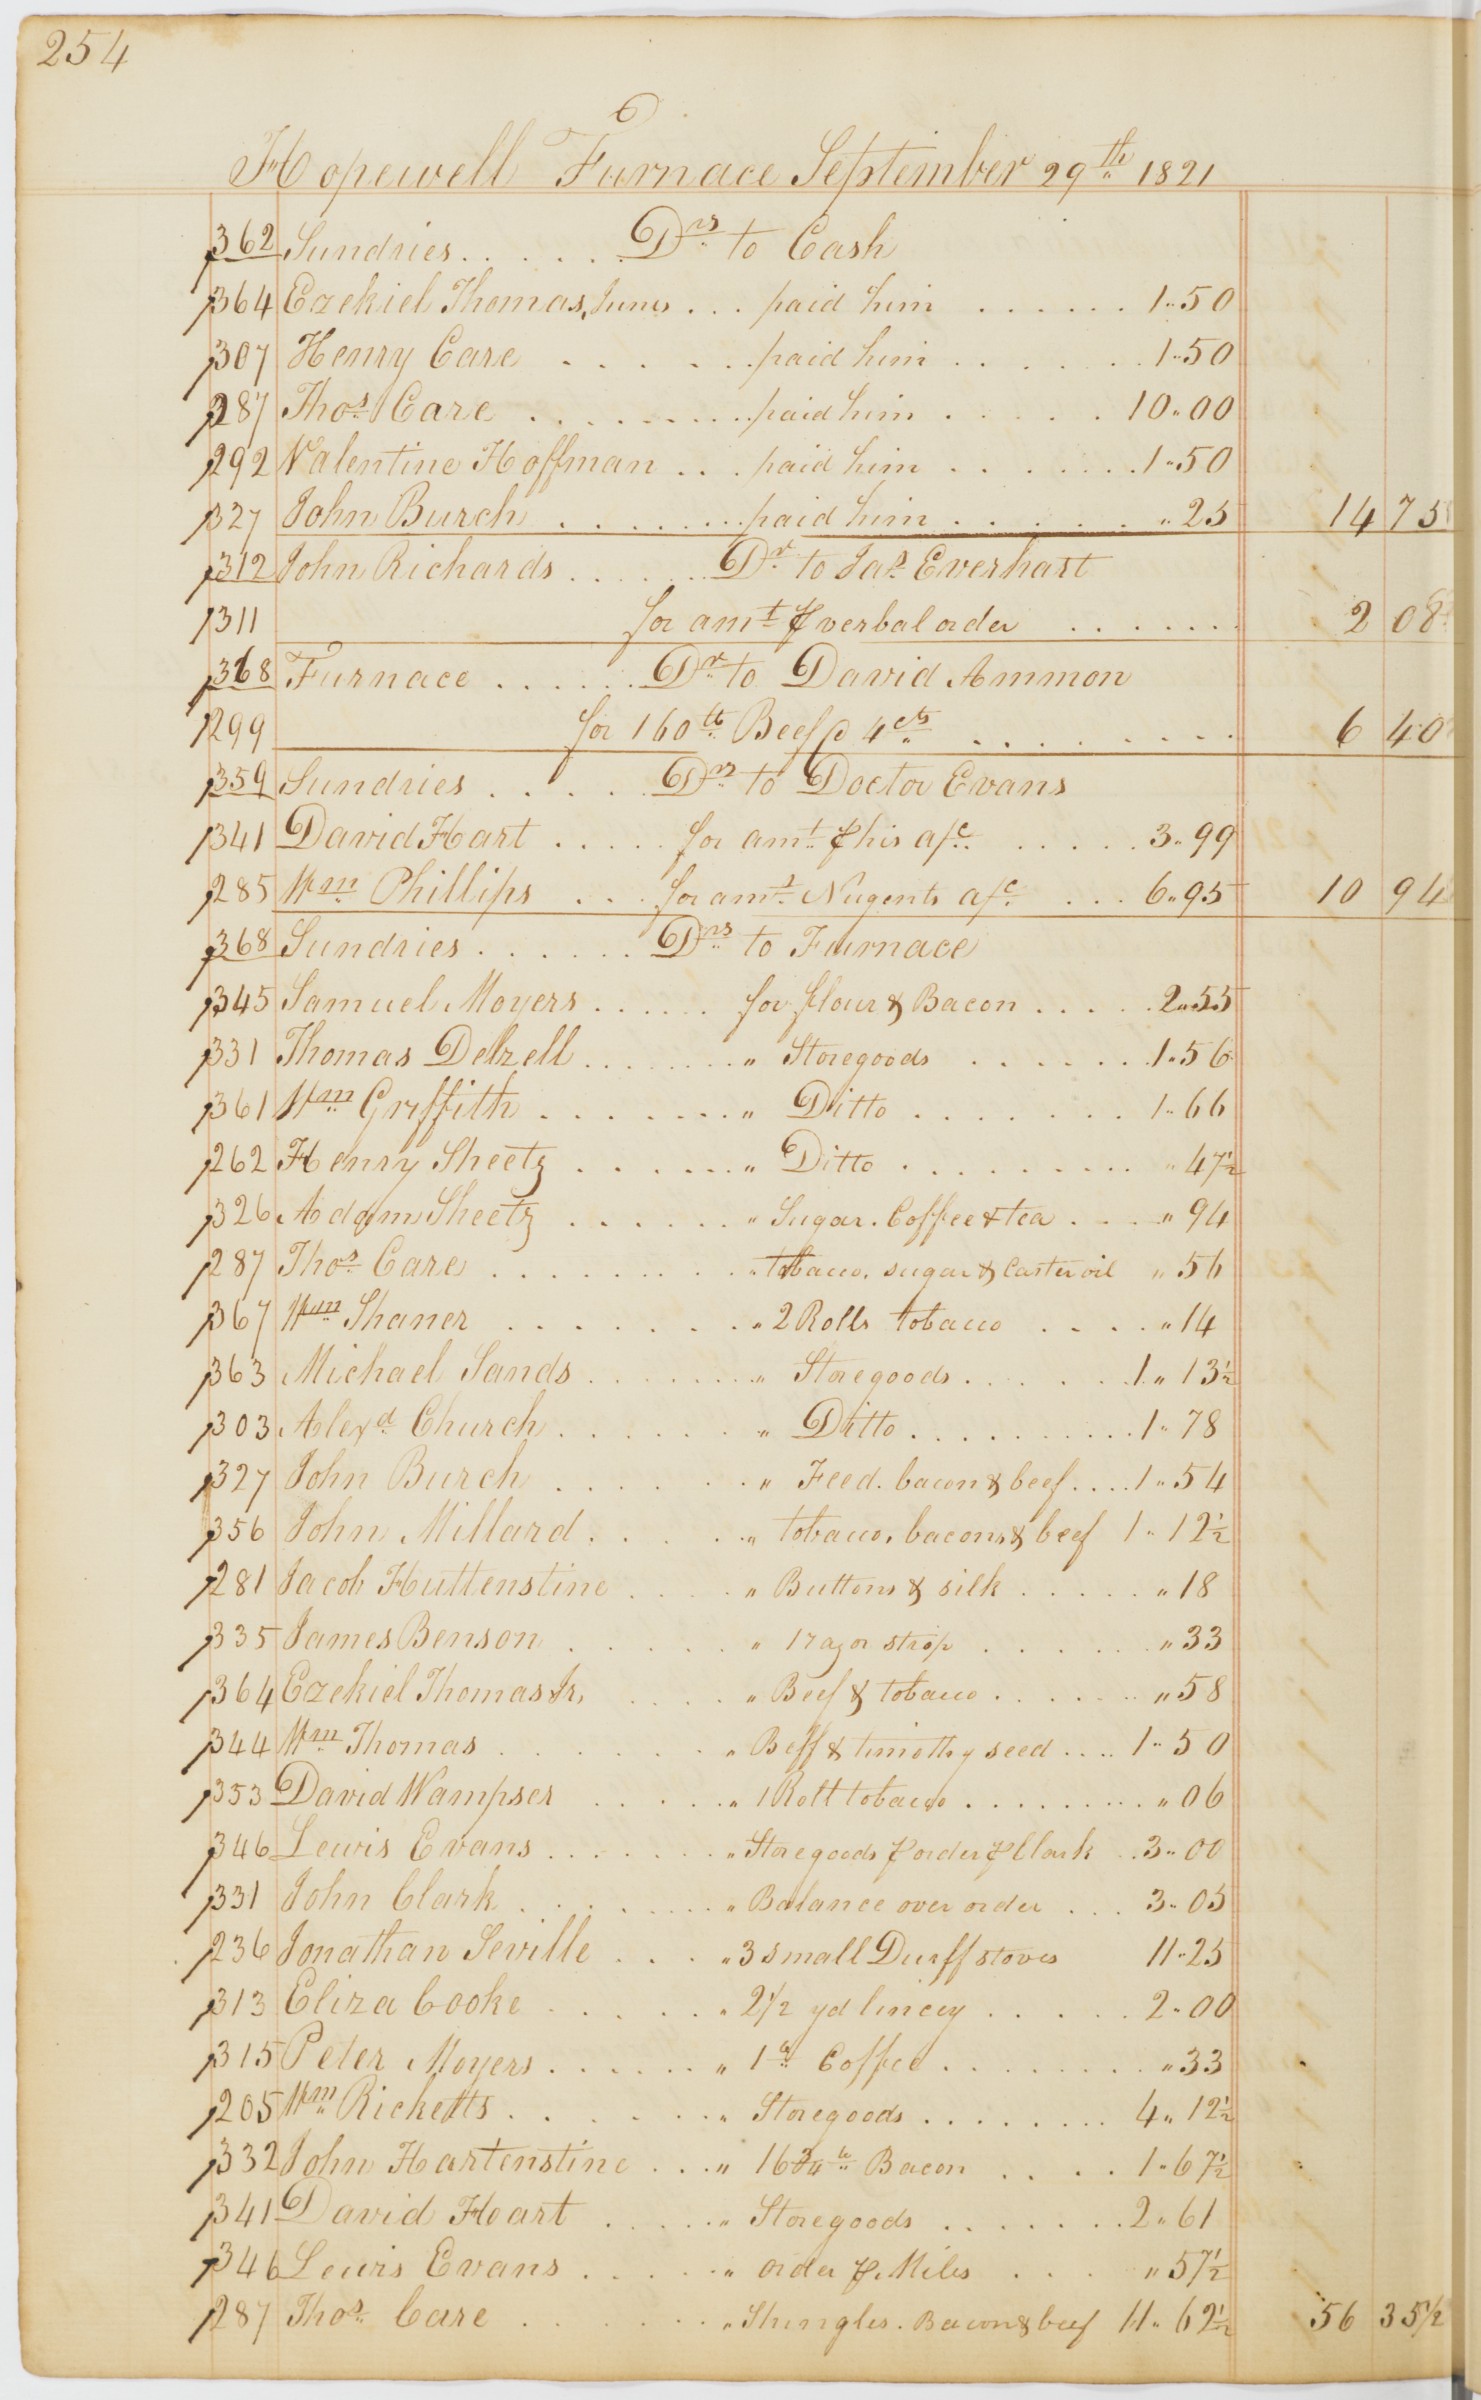 254
Hopewell Furnace September 29th 1821
362 Sundries . . . . . . Drs to Cash
364 Ezekiel Thomas, Junr . . . paid him . . . . . . 1"50
307 Henry Care . . . . . . paid him . . . . . . 1"50
287 Thos Care . . . . . . . . paid him . . . . . 10"00
292 Valentine Hoffman . . . paid him . . . . . . . 1"50
327 John Burch . . . . . . . paid him . . . . . . "25 14 75
312 John Richards . . . . . . Dr to Jas Everhart
311 for amt ⅌ verbal order . . . . . . . 2 08
368 Furnace . . . . . . Dr to David Ammon
299 for 160 lb Beef @ 4 cts . . . . . . . . . 6 40
359 Sundries . . . . . Drs to Doctor Evans
341 David Hart . . . . . for amt ⅌ his a/c . . . . . 3"99
285 Wm Phillips . . . for amt Nugents a/c . . . 6"95 10 94
368 Sundries . . . . . . Drs to Furnace
345 Samuel Moyers . . . . . . for flour & Bacon . . . . . 2"55
331 Thomas Delzell . . . . . . . . " Storegoods . . . . . . 1"56
361 Wm Griffith . . . . . . . " Ditto . . . . . . . 1"66
262 Henry Sheetz . . . . . . " Ditto . . . . . . . . . " 47½
326 Adam Sheetz . . . . . . " Sugar. Coffee & tea . . . . " 94
287 Thos Care . . . . . . . . . " tobacco, sugar & Caster oil " 56
367 Wm Shaner . . . . . . . . " 2 Rolls tobacco . . . . " 14
363 Michael Sands . . . . . . . . " Storegoods . . . . . . 1 " 13½
303 Alexd Church . . . . . . " Ditto . . . . . . . . . . 1 " 78
327 John Burch . . . . . . " Feed. bacon & beef . . . . 1 " 54
356 John Millard . . . . . " tobacco, bacon & beef 1 " 12½
281 Jacob Huttenstine . . . . " Buttons & silk . . . . . " 18
335 James Benson . . . . . " 1 razor strop . . . . . . " 33
364 Ezekiel Thomas Jr, . . . . " Beef & tobacco . . . . . . " 58
344 Wm Thomas . . . . . . . " Beff & timothy seed . . . . 1 " 50
353 David Wampser . . . . . " 1 Roll tobacco . . . . . . . . " 06
346 Lewis Evans . . . . . . . " Storegoods ⅌ order ⅌ Clark . . 3 " 00
331 John Clark . . . . . . . " Balance over order . . . 3 " 05
236 Jonathan Seville . . . . " 3 small Durff stoves 11 " 25
313 Eliza Cooke . . . . . . " 2½ yd lincey . . . . . 2 " 00
315 Peter Moyers . . . . . . " 1 lb Coffee . . . . . . . . " 33
205 Wm Ricketts . . . . . . . " Storegoods . . . . . . . . 4 " 12½
332 John Hartenstine . . . " 16¾ lb Bacon . . . . 1 " 67½
341 David Heart . . . . . . " Storegoods . . . . . . . 2 " 61
346 Lewis Evans . . . . . . " order ⅌ Miles . . . . " 57½
287 Thos Care . . . . . . " Shingles. Bacon & beef 11 " 62½ 56 35½